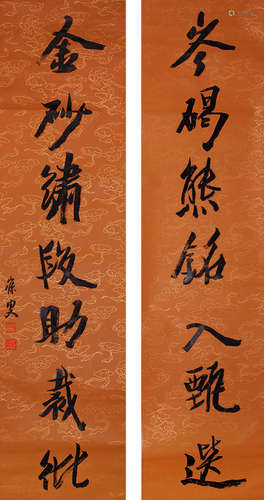 岑碣熊銘入甄選
金砂繡段助裁紕
寐叟